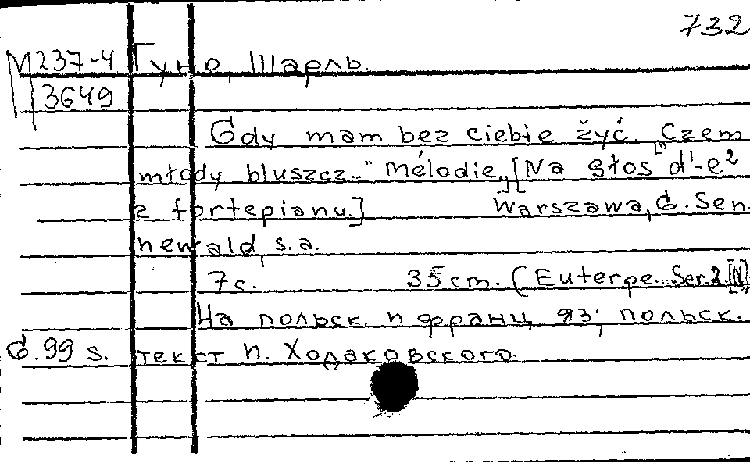 732
М 237-4 Гуно, Шарль.
3649
Gdy mam bez ciebie żyć. "Czem
młody bluszcz..." Mélodie. [Na głos d'-e²
z fortepianu.] Warszawa, G. Sen
newald, s.a.
7с. 35 cm. (Euterpe. Ser. 2.
На польск. и франц. яз; польск.
G. 99 s. текст П. Ходаковского.